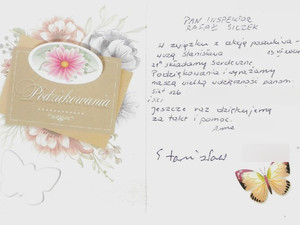 Podziękowania
PAN INSPEKTOR
RAFAŁ SICZEK
W związku z akcją poszukiwa-
wczą Stanisława
składamy serdeczne
Podziękowania i wyrażamy
naszą wielką wdzięczność
Jeszcze raz dziękujemy
za takt i pomoc.
Anna
Stanisław